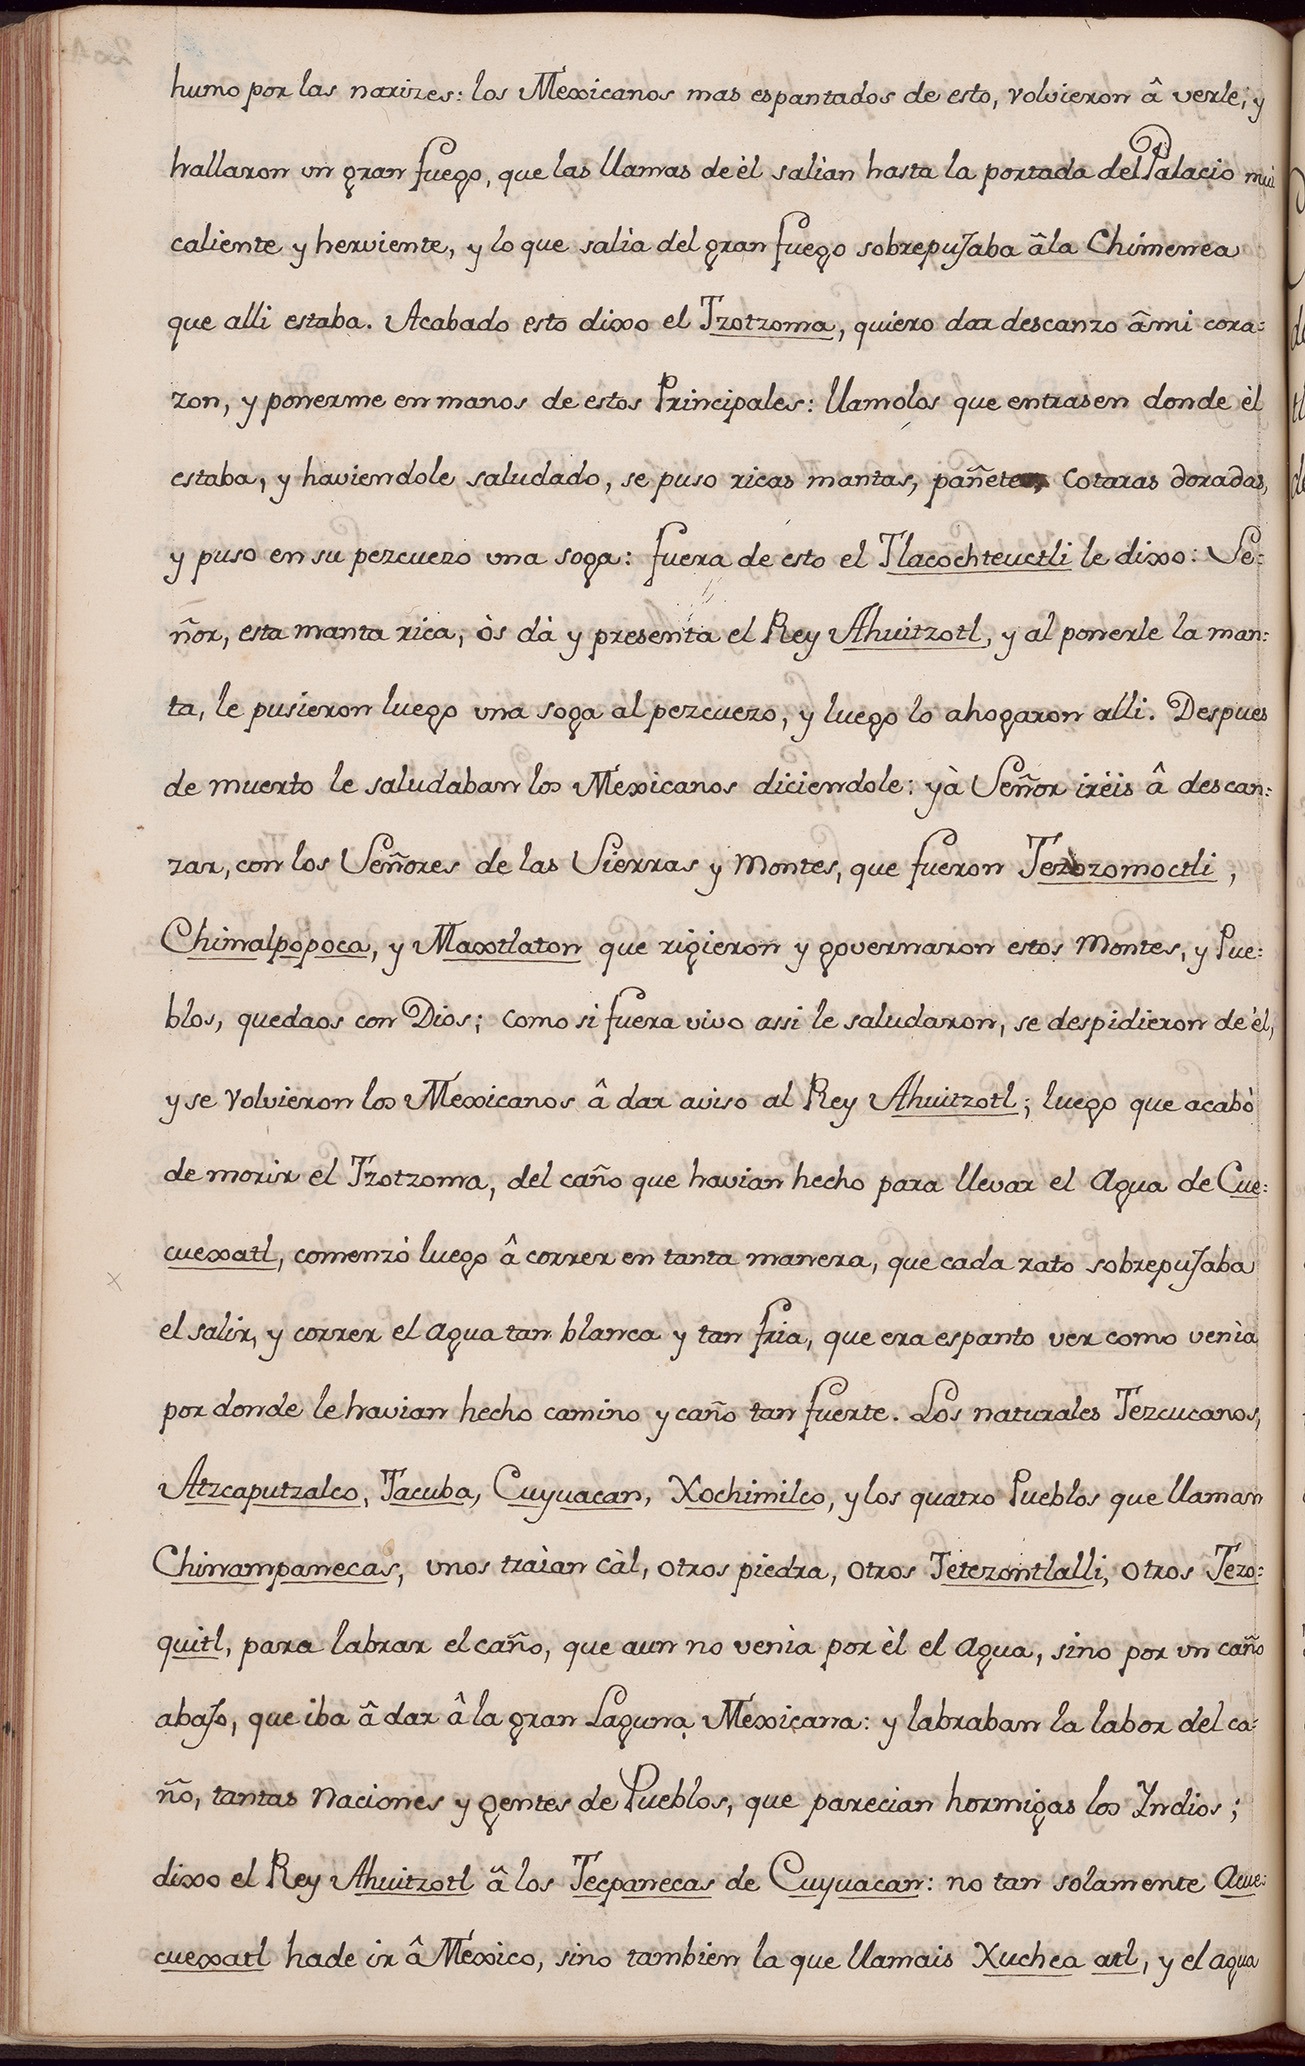 humo por las narizes: los Mexicanos mas espantados de esto, volvieron â verle, y
hallaron un gran fuego, que las llamas de èl salìan hasta la portada del Palacio mui
caliente y herviente, y lo que salia del gran fuego sobrepujaba â la Chimenea
que alli estaba. Acabado esto dixo el Tzotzoma, quiero dar descanzo â mi cora=
zon, y ponerme en manos de estos Principales: llamolos que entrasen donde èl
estaba, y haviendole saludado, se puso ricas mantas, pañetes, cotaras doradas,
y puso en su pezcuezo una soga: fuera de esto el Tlacochteuctli le dixo: Se=
ñor, esta manta rica, òs dà y presenta el Rey Ahuitzotl, y al ponerle la man=
ta, le pusieron luego una soga al pezcuezo, y luego lo ahogaron alli. Despues
de muerto le saludaban los Mexicanos diciendole: yà Señor irèis â descan=
zar, con los Señores de las Sierras y Montes, que fueron Tezozomoctli,
Chimalpopoca, y Maxtlaton que rigieron y governaron estos Montes, y Pue=
blos, quedaos con Dios; como si fuera vivo assi le saludaron, se despidieron de èl,
y se volvieron los Mexicanos â dar aviso al Rey Ahuitzotl; luego que acabò
de morir el Tzotzoma, del caño que havian hecho para llevar el agua de Cue=
cuexatl, comenzò luego â correr en tanta manera, que cada rato sobrepujaba
el salir, y correr el agua tan blanca y tan fria, que era espanto ver como venìa
por donde le havian hecho camino y caño tan fuerte. Los naturales Tezcucanos,
Atzcaputzalco, Tacuba, Cuyuacan, Xochimilco, y los quatro Pueblos que llaman
Chinampanecas, unos traìan càl, otros piedra, otros Tetezontlalli, otros Tezo=
quitl, para labrar el caño, que aun no venìa por èl el agua, sino por un caño
abajo, que iba â dar â la gran Laguna Mexicana: y labraban la labor del ca=
ño, tantas naciones y gentes de Pueblos, que parecian hormigas los Yndios;
dixo el Rey Ahuitzotl â los Tecpanecas de Cuyuacan: no tan solamente Acue=
cuexatl hade ir â Mèxico, sino tambien la que llamais Xuchca atl, y el agua